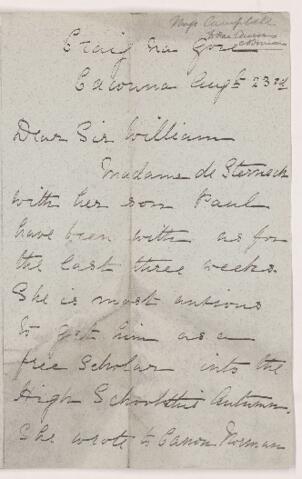 Mrs Campbell
Craig na Gore
Cacouna Augt 23rd
Dear Sir William
Madame de Sterneck
with her son Paul
have been with us for
the last three weeks
She is most antious
to get him as a
free Scholar into the
High School this Autumn.
She wrote to Canon Norman